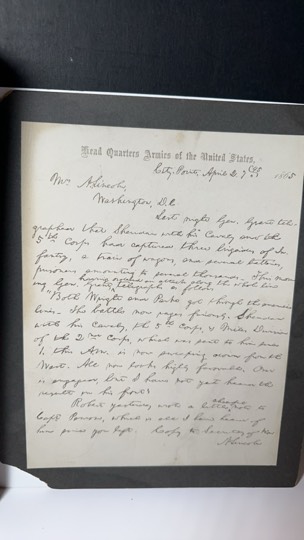 Head Quarters Armies of the United States,
City Point, April 2. 7 45 1865
Mrs A. Lincoln,
Washington, D.C.
Last night Gen. Grant tel-
egraphed that Sheridan with his Cavalry and the
5th Corps had captured three brigades of In-
fantry, a train of wagons, and several batteries,
prisoners amounting to several thousands. This morn-
ing Gen. Grant, having ordered an attack along the whole line
telegraphs as follows
"Both Wright and Parke got through the enemies
lines. The battle now rages furiously. Sheridan
with his Cavalry, the 5th Corps, & Miles Division
of the 2nd Corps, which was sent to him since
1. this A.M. is now sweeping down from the
West. All now looks highly favorable. Ord
is engaged, but I have not yet heard the
result on his front"
Robert yesterday wrote a little cheerful note to
Capt. Penrose, which is all I have heard of
him since you left. Copy to Secretary of War
A. Lincoln